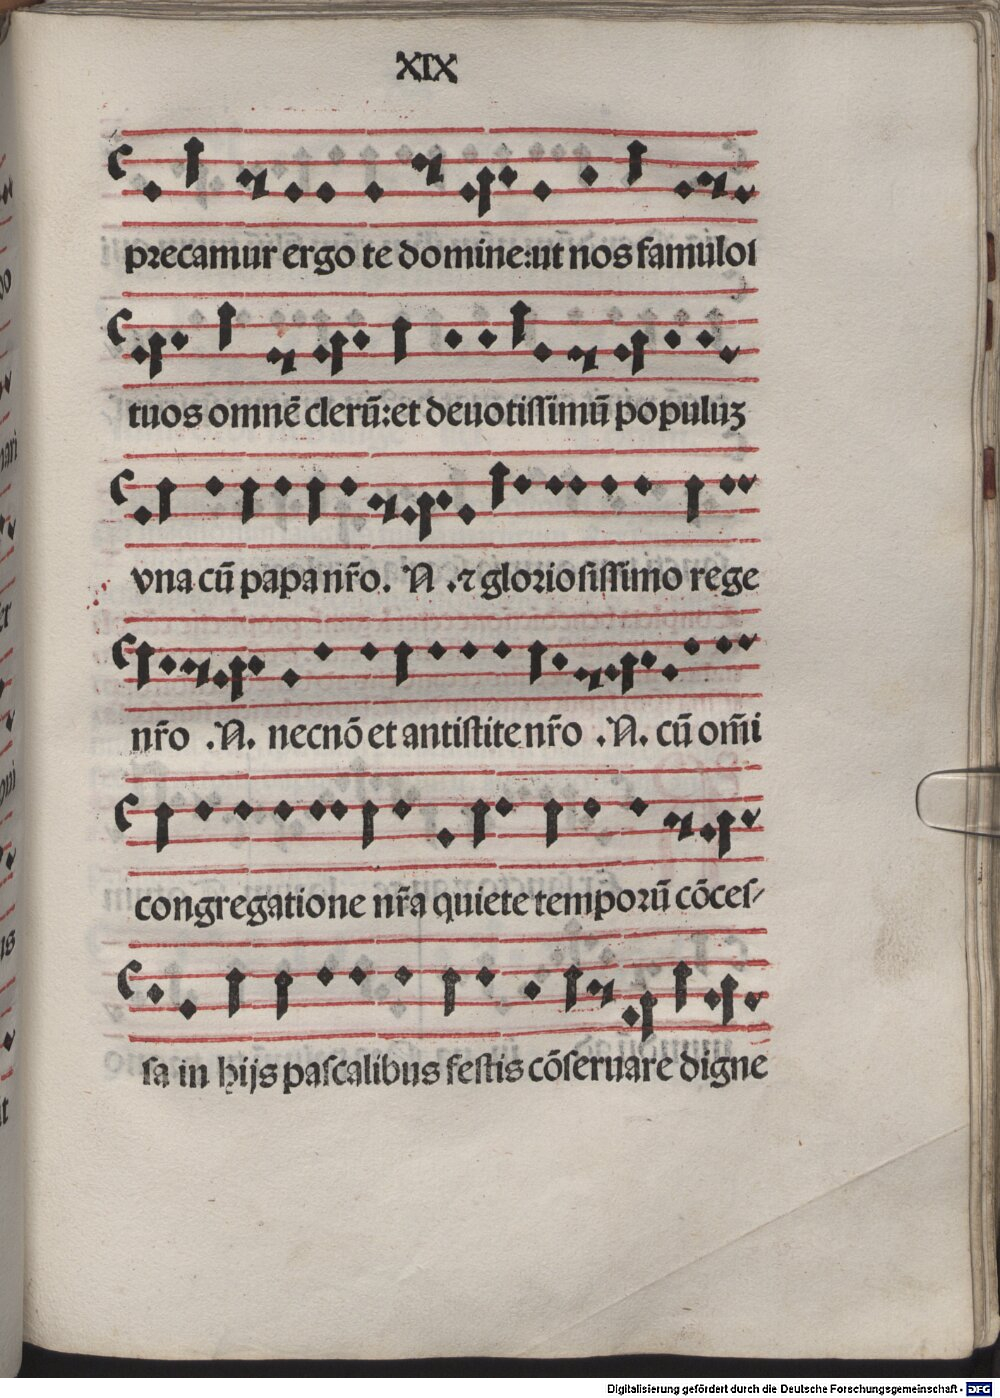 XIX
precamur ergo te domine:ut nos famulos
tuos omnē clerū:et deuotissimū populuꝫ
vna cū papa nr̄o. N .⁊ gloriosissimo rege
nr̄o .N. necnō et antistite nr̄o .N. cū om̄i
congregatione nr̄a quiete temporū cōces⸗
sa in hijs pascalibus festis cōseruare digne
Digitalisierung gefördert durch die Deutsche Forschungsgemeinschaft - DFG